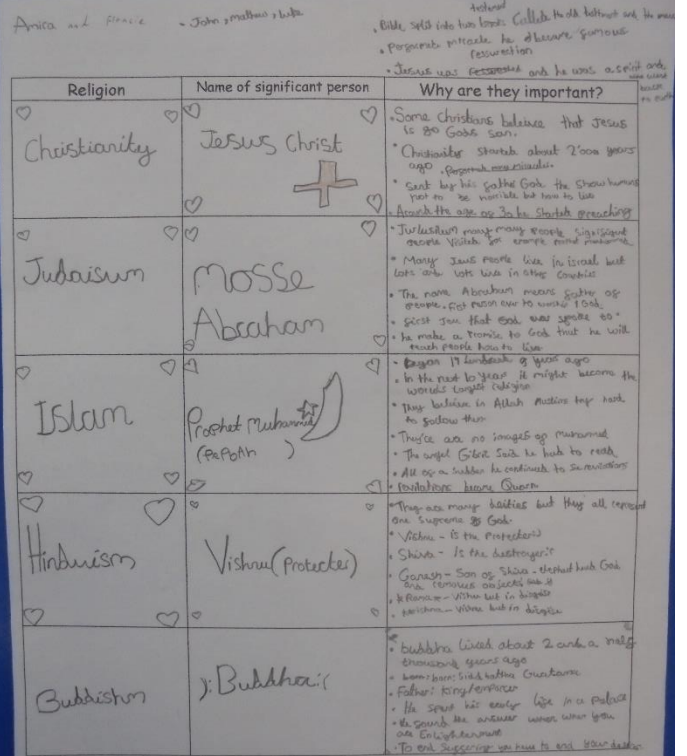 Amira and
• John, mathew, luke
testered
• Bible split into two books Called the old testment and the
• Performed miracle he became famous
ressurection
• Jesus was and he was a spirit and
back
to earth
Religion
Name of significant person
Why are they important?
Christianity
Jesus Christ
• Some Christians beleive that Jesus
is so Gods son.
• Christianity started about 2'000 years
ago
• sent by his father God the show humans
not to be horrible but how to live
• Around the age of 30 he started preaching
Judaisum
Mosse
Abraham
many many people significant
people visited for
• Many Jews people live in israel but
lots and lots live in other countries
• The name Abraham means father of
people. first person ever to 1 God.
• first Jew that God ever spoke to
• he make a promise to God that he will
teach people how to live
Islam
Prophet Muhammed
(PBPOAh )
• Began 14 hundred of years ago
• In the next 10 year it might become the
worlds largest religion
• They beleive in Allah muslims try hard
to follow them
• They're are no images of Muhammed
• The angel Gibril said he had to read
• All of a sudden he continued to
• become Quran
Hinduism
Vishnu (Protecter)
• They are many deities but they all represent
one Supreme God.
• Vishnu - is the Protecter
• Shiva - Is the destroyer
• Ganesh - Son of Shiva - elephant head God
and removes objects
• Rama - Vishnu but in disgise
• Krishna - Vishnu but in disgise
Buddishm
):Buddha:(
• buddha lived about 2 and a half
thousand years ago
• born: Siddhattha Guatama
• Father: king/emporer
• He spent his early life in a Palace
• He found the answer when when you
are Enlightenment
• To end suffering you have to end your desire